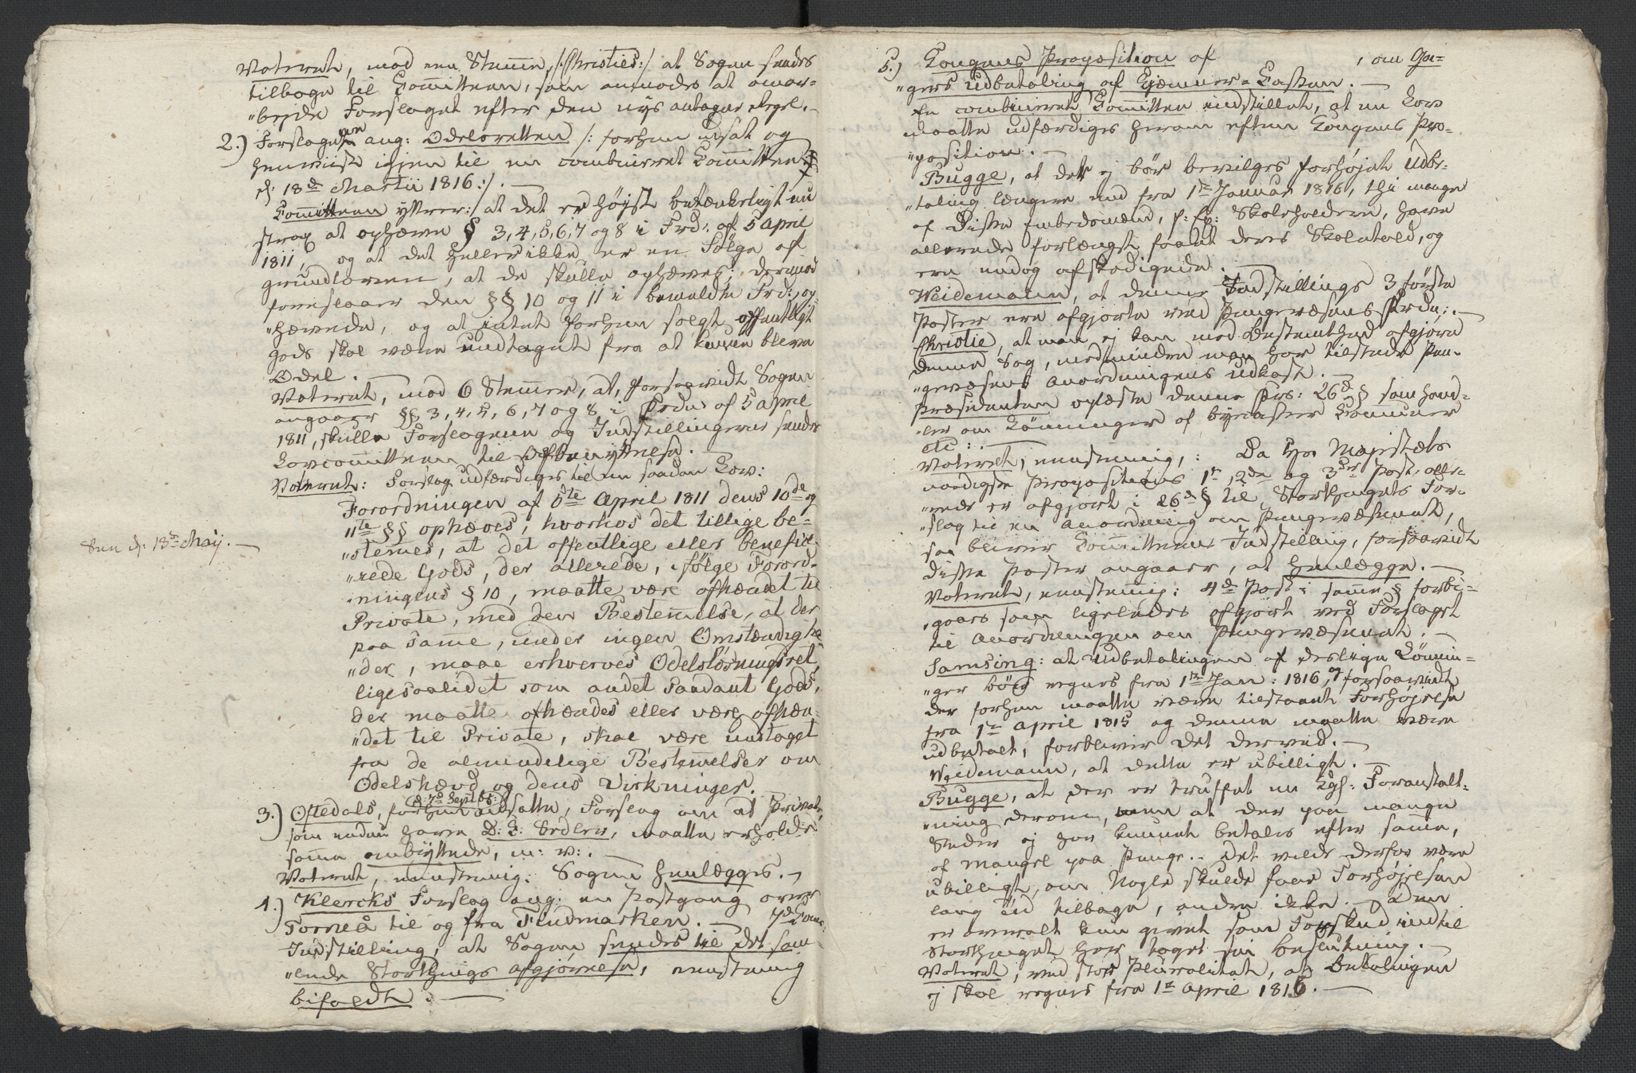 Voteret, mod een Stemme /: Christies :/ at Sagen sendes
tilbage til Committeen, som anmodes at omar-
"bejde Forslaget efter den nys antagne Regel. -
2.) Forslagene ang: Odelsretten /: forhen udsat og
henviist igjen til en combineret Committee
d. 18de Martii 1816 :/. -
Committeen yttrer: at det er høyst betænkeligt nu
strax at ophæve § 3, 4, 5, 6, 7 og 8 i Frd: af 5 April
1811, og at det heller ikke er en Følge af
grundloven, at de skulle ophæves; derimod
foreslaaer den §§ 10 og 11 i bemeldte Frd: op-
"hævede, og at intet forhen solgt offentligt
gods skal være undtaget fra at kunne blive
Odel. -
Voteret, mod 6 Stemmer, at, forsaavidt Sagen
angaaer §§ 3, 4, 5, 6, 7 og 8 i Frdn af 5 April
1811, skulle Forslagene og Indstillingerne sendes
Lovcommitteen til Afbenyttelse.
Voteret: Forslag udfærdiges til en saadan Lov:
Forordningen af 5te April 1811 dens 10de og
11te §§ ophæves, hvorhos det tillige be-
"stemes, at det offentlige eller benefice-
"rede Gods, der allerede, ifølge Forord-
"ningens § 10, maatte være afhændet til
Private, med den Bestemelse, at der
paa same, under ingen Omstændighe-
"der, maae erhverves Odelsløsningsret,
ligesaalidet som andet saadant Gods,
der maatte afhændes eller være afhæn-
"det til Private, skal være undtaget
fra de almindelige Bestemelser om
Odelshævd og dens Virkninger.
Sen d: 13de May. -
3.) Oftedals, forhen d. 7de Sept. udsatte, Forslag om at Private
som endnu have D: C: Sedler, maatte erholde
samme ombyttede, m: v:. -
Voteret, eenstemig: Sagen henlægges. -
4.) Klercks Forslag ang: en Postgang over
Torneå til og fra Findmarken. - 7de Com:
Indstilling, at Sagen sendes til det sam-
"lende Storthings afgjørelse, eenstemig
bifaldt. -
5.) Kongens Proposition af , om Ga-
"gers Udbetaling af Hjemmer Kassen. -
En combineret Committee indstillet, at en Lov
maatte udfærdiges herom efter Kongens Pro-
"position. -
Bugge, at det ej bør bevilges forhøjet Udbe-
"taling længere end fra 1te Januar 1816, thi mange
af disse Embedsmænd, f: Ex: Skoleholdere, have
allerede forlængst faaet deres Skolehold, og
ere endog afskedigede. -
Weidemann, at denne Indstillings 3 første
Poster ere afgjorte ved Pengevæsens Frdn:. -
Christie, at man ej kan med Bestemthed afgjøre
denne Sag, medmindre man har tilstede Pen-
"gevæsens anordningens udkast. -
Præsidenten oplæste denne Frs: 26de § som hand-
"ler om Lønninger af Kommuner
etc:. -
Voteret, eenstemig,: Da Hs: Majestæts
naadigste Propositions 1te, 2den og 3die Post alle-
"rede er afgjort i 26de § til Storthingets For-
"slag til en Anordning om Pengevæsenet,
saa bliver Committeens Indstilling, forsaavidt
disse Poster angaaer, at henlægge. -
Voteret, eenstemig: 4de Post i samme § forbi-
"gaaes som ligeledes afgjort ved Forslaget
til Anordningen om Pengevæsenet. -
Samsing: at Udbetalingen af deslige Lønnin-
"ger bør regnes fra 1te Jan: 1816, og forsaavidt
der forhen maatte være tilstaaet Forhøjelse
fra 1te April 1815 og denne maatte være
udbetalt, forbliver det derved. -
Weidemann, at dette er ubilligt. -
Bugge, at der er truffet en Kgl: Foranstalt-
"ning derom, men at der paa mange
Steder ej har kunnet betales efter samme,
af Mangel paa Penge. - Det vilde derfor være
ubilligt, om Nogle skulde faae Forhøjelsen
lang tid tilbage, andre ikke. - Den
er overalt kun givet som Forskud indtil
Storthinget har taget sin beslutning. -
Voteret, ved stor Pluralitet, at Betalingen
ej skal regnes fra 1te April 1815. -